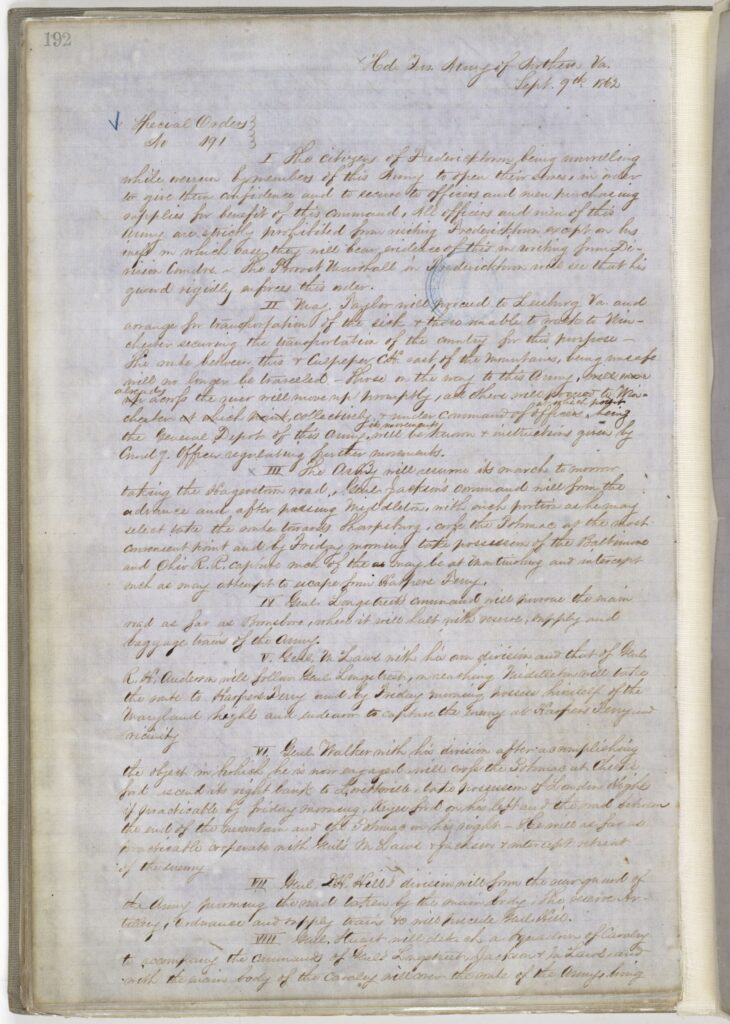 192
Hd. Qrs. Army of Northern Va.
Sept. 9th 1862
Special Orders
No 191
I The citizens of Fredericktown being unwilling
while overrun by members of this Army to open their stores, in order
to give them confidence and to secure to officers and men purchasing
supplies for benefit of this command, All officers and men of this
Army are strictly prohibited from visiting Fredericktown except on bis
in which case they will bear evidence of this in writing from Di-
vision Comdrs - The Provost Marshall in Fredericktown will see that his
guard rigidly enforces this order.
II Maj. Taylor will proceed to Leesburg Va. and
arrange for transportation of the sick & those unable to walk to Win-
chester securing the transportation of the country for this purpose -
The route between this & Culpeper C.H. east of the mountains, being unsafe
will no longer be traveled - Those on the way to this Army,
already
up across the river will move up promptly, all others will proceed to Win-
chester collectively & under command of officers, being
at which point
the General Depot of this Army, its movements will be known & instructions given by
Comd'g. Officer regulating further movements.
III The Army will resume its march to morrow
taking the Hagerstown road, Genl. Jackson's command will form the
advance and after passing Middleton, with such portion as he may
select take the route towards Sharpsburg, cross the Potomac at the most
convenient point and by Friday morning take possession of the Baltimore
and Ohio R.R. capture such of the as may be at Martinsburg and intercept
such as may attempt to escape from Harpers Ferry.
IV Genl. Longstreets command will pursue the main
road as far as Boonsboro, where it will halt with reserve, supply and
baggage trains of the Army.
V. Genl. McLaws with his own division and that of Genl.
R. H. Anderson will follow Genl. Longstreet, on reaching Middleton will take
the route to Harpers Ferry and by Friday morning possess himself of the
Maryland height and endeavor to capture the enemy at Harpers Ferry and
vicinity
VI. Genl. Walker with his division after accomplishing
the object in which he is now engaged will cross the Potomac at Cheeks
ford ascend its right bank to Lovettsville - take possession of Loudon Heights
if practicable by friday morning, Keyes ford on his left and the road between
the end of the mountain and the Potomac on his right - He will as far as
practicable cooperate with Genl's McLaws & Jackson & intercept retreat
of the enemy
VII Genl. D.H. Hill's division will form the rear guard of
the Army pursuing the road taken by the main body. The reserve Ar-
tillery, Ordnance and supply trains &c will precede Genl. Hill.
VIII Genl. Stuart will detach a Squadron of Cavalry
to accompany the commands of Genl's Longstreet, Jackson & McLaws and
with the main body of the Cavalry will cover the route of the Army, bring